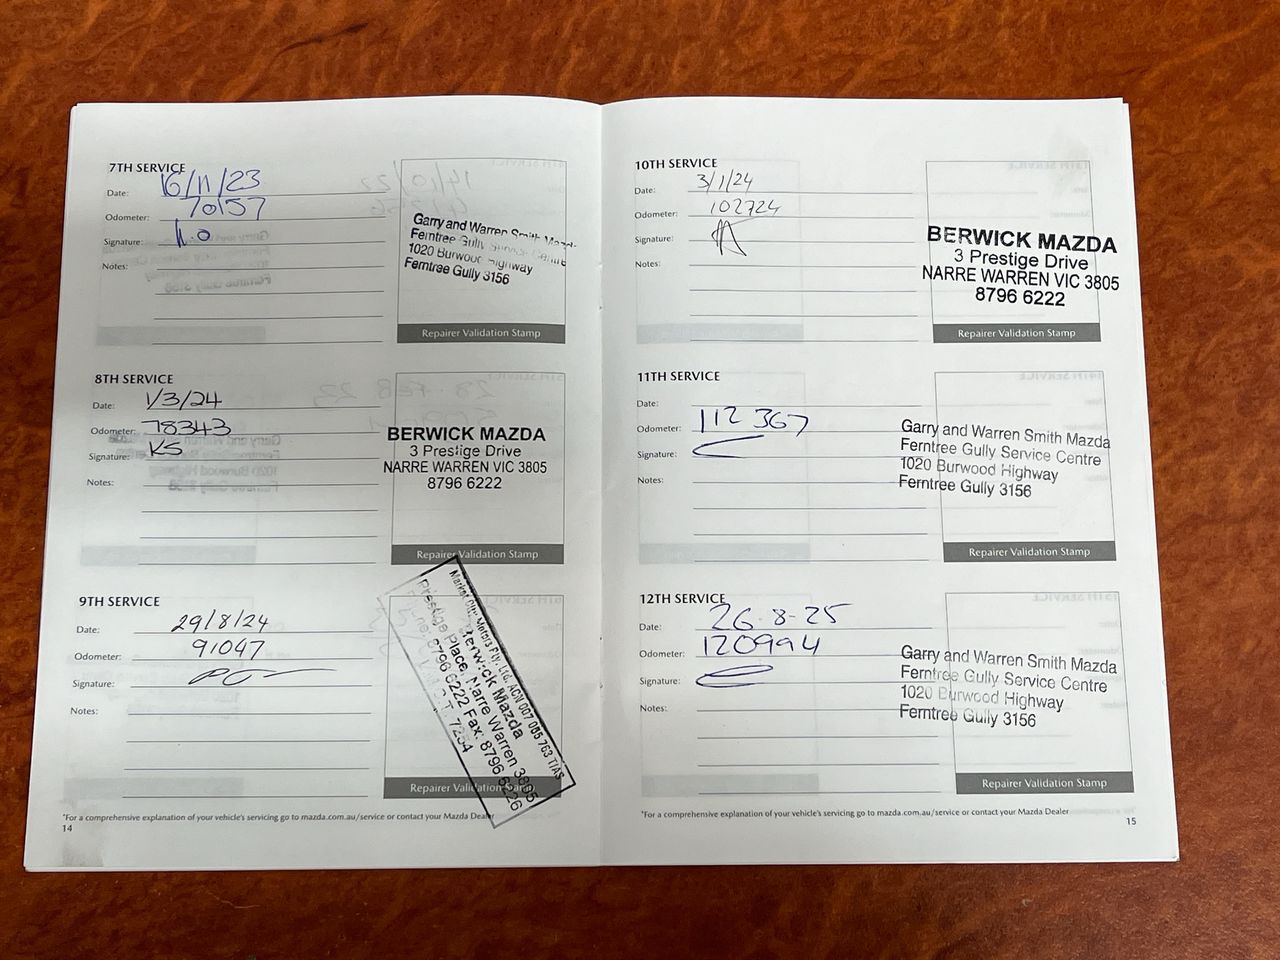 7TH SERVICE
Date: 16/11/23
Odometer: 70157
Signature: K.O
Notes:
Garry and Warren Smith Mazda
Ferntree Gully Service Centre
1020 Burwood Highway
Ferntree Gully 3156
Repairer Validation Stamp
8TH SERVICE
Date: 1/3/24
Odometer: 78343
Signature: KS
Notes:
BERWICK MAZDA
3 Prestige Drive
NARRE WARREN VIC 3805
8796 6222
Repairer Validation Stamp
9TH SERVICE
Date: 29/8/24
Odometer: 91047
Signature:
Notes:
Berwick Mazda
Prestige Place, Narre Warren 3805
8796 6222 Fax: 8796 6226
7254
Repairer Validation Stamp
*For a comprehensive explanation of your vehicle's servicing go to mazda.com.au/service or contact your Mazda Dealer
14
10TH SERVICE
Date: 3/1/24
Odometer: 102724
Signature:
Notes:
BERWICK MAZDA
3 Prestige Drive
NARRE WARREN VIC 3805
8796 6222
Repairer Validation Stamp
11TH SERVICE
Date:
Odometer: 112 367
Signature:
Notes:
Garry and Warren Smith Mazda
Ferntree Gully Service Centre
1020 Burwood Highway
Ferntree Gully 3156
Repairer Validation Stamp
12TH SERVICE
Date: 26-8-25
Odometer: 120994
Signature:
Notes:
Garry and Warren Smith Mazda
Ferntree Gully Service Centre
1020 Burwood Highway
Ferntree Gully 3156
Repairer Validation Stamp
*For a comprehensive explanation of your vehicle's servicing go to mazda.com.au/service or contact your Mazda Dealer
15